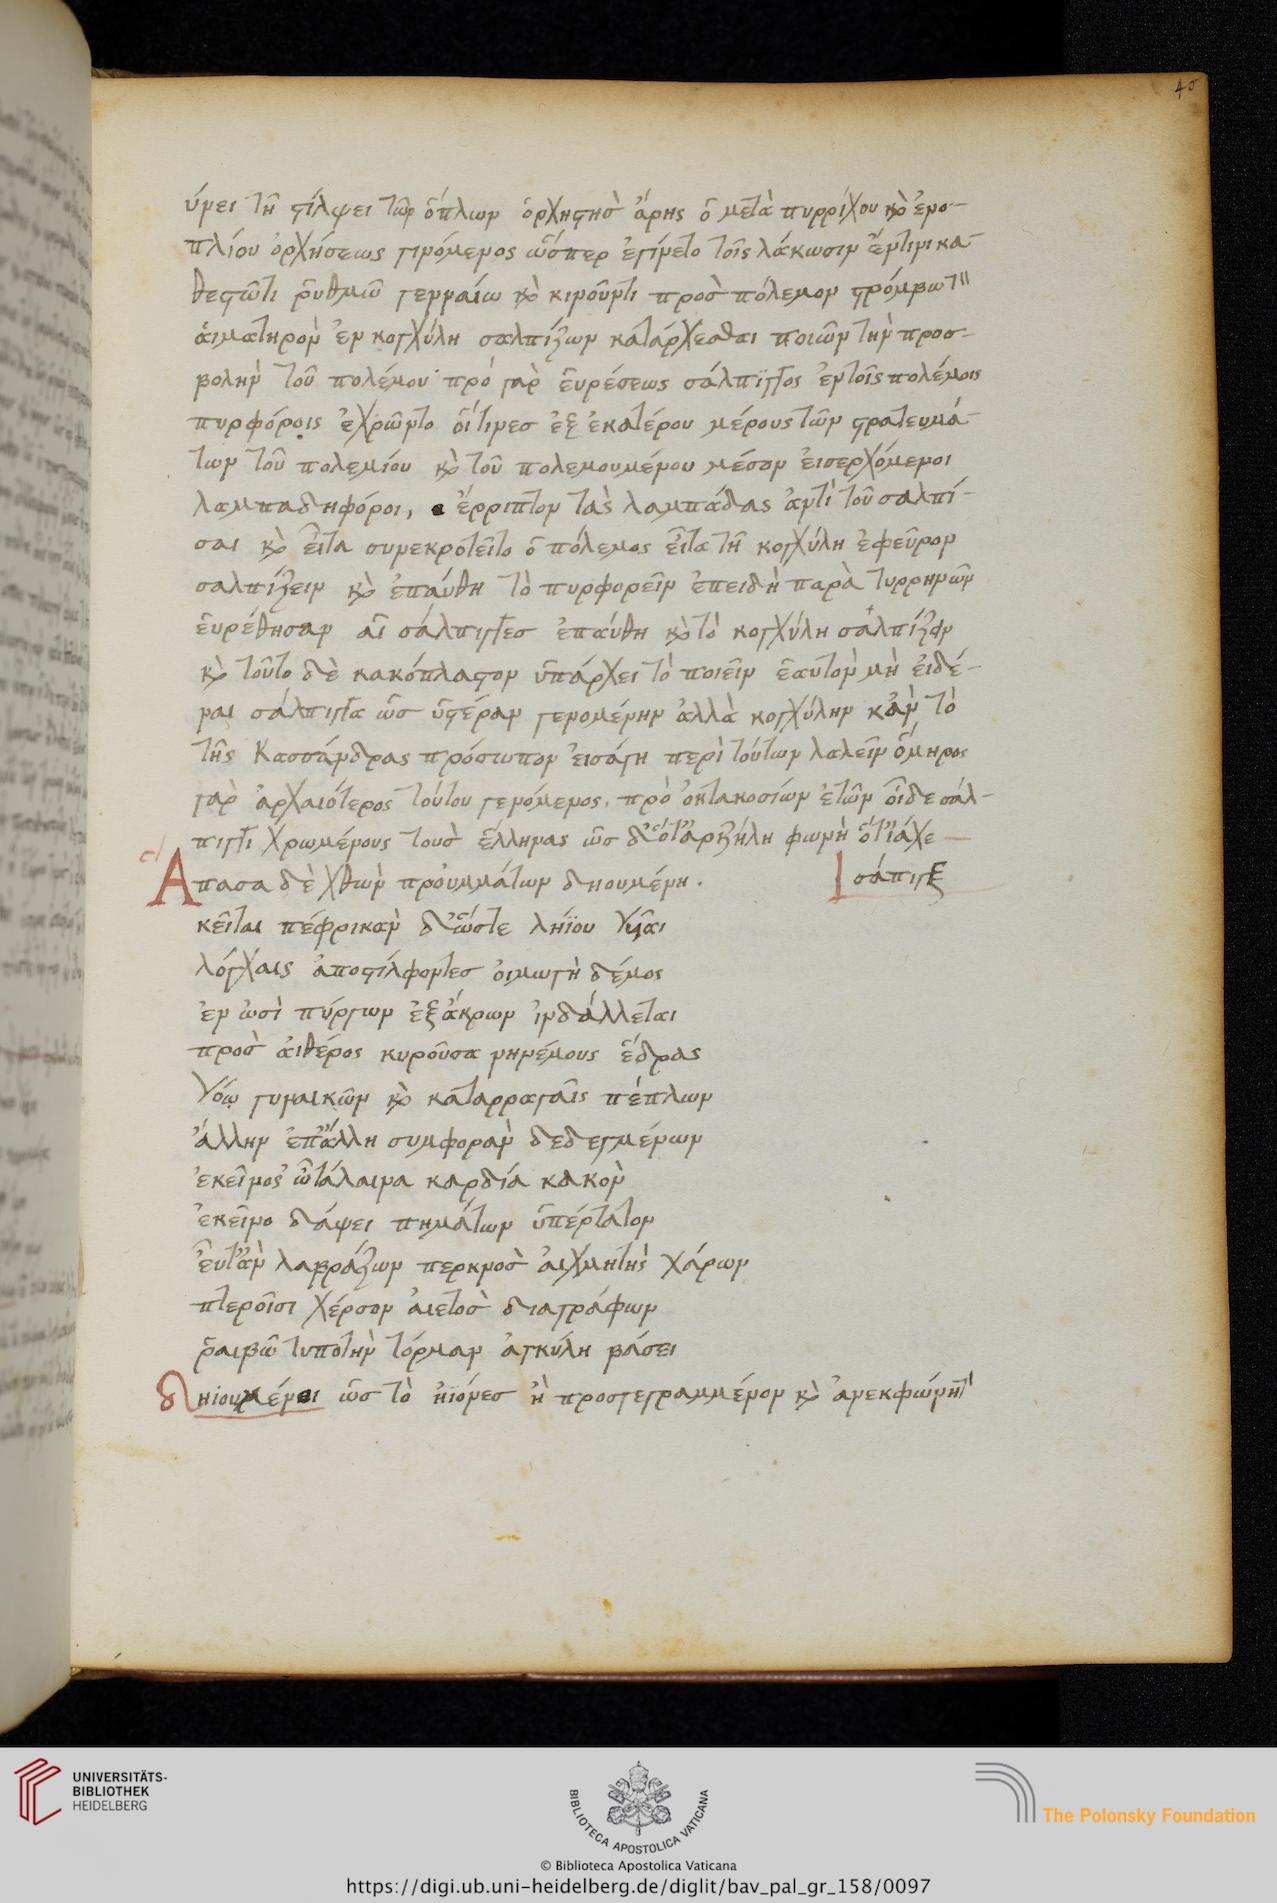 45
ύνει τῆ στίλψει τῶν ὅπλων ὀρχηστὴσ ἄρης ὁ μετὰ πυρρίχου κὸ ἐνο-
πλίου ὀρχήσεως γινόμενος ὥσπερ ἐγίνετο τοῖς λάκωσιν ἔντινι κα-
θεστῶτι ῥυθμῶ γενναίω κὸ κινοῦντι πρὸσ πόλεμον στρόμβω τ"
αἱματηρὸν ἐν κογχύλη σαλπίζων κατάρχεσθαι ποιῶν τὴν προσ-
βολὴν τοῦ πολέμου· πρὸ γὰρ εὑρέσεως σάλπϊγγος ἐντοῖς πολέμοις
πυρφόροις ἐχρῶντο οἵτινεσ ἐξ ἑκατέρου μέρους τῶν στρατευμά-
των τοῦ πολεμίου κὸ τοῦ πολεμουμένου μέσον εἰσερχόμενοι
λαμπαδηφόροι, ἔρριπτον τὰς λαμπάδας ἀντὶ τοῦ σαλπί-
σαι κὸ εἶτα συνεκροτεῖτο ὁ πόλεμος εἶτα τῆ κογχύλη ἐφεῦρον
σαλπίζειν κὸ ἐπαύθη τὸ πυρφορεῖν ἐπειδὴ παρὰ τυρρηνῶν
εὑρέθησαν αἱ σάλπιγγεσ ἐπαύθη κὸ τὸ κογχύλη σαλπίζειν
κὸ τοῦτο δὲ κακόπλαστον ὑπάρχει τὸ ποιεῖν ἑαυτὸν μὴ εἰδέ-
ναι σάλπιγγα ὡσ ὑστέραν γενομένην ἀλλὰ κογχύλην κἀν τὸ
τῆς Κασσάνδρας πρόσωπον εἰσάγη περὶ τούτων λαλεῖν ὅμηρος
γὰρ ἀρχαιότερος τούτου γενόμενος, πρὸ ὀκτακοσίων ἐτῶν οἶδε σάλ-
πιγγι χρωμένους τοὺσ ἕλληνας ὡσ δ᾽ὅτ᾽ἀριζήλη φωνὴ ὅτ᾽ἰάχε
Ἅπασα δὲ χθὼν προὐμμάτων δηουμένη. σάπιγξ
κεῖται πέφρικαν δ᾽ὥστε ληΐου γύαι
λόγχαις ἀποστίλφοντεσ οἰμωγὴ δέμος
ἐν ὠσὶ πύργων ἐξάκρων ἰνδάλλεται
πρὸσ αἰθέρος κυροῦσα νηνέμους ἕδρας
Γόῳ γυναικῶν κὸ καταρραγαῖς πέπλων
ἄλλην ἐπ᾽ἄλλη συμφορὰν δεδεγμένων
ἐκεῖνοσ ὦτάλαινα καρδία κακὸν
ἐκεῖνο δάψει πημάτων ὑπέρτατον
εὖτ᾽ἂν λαβράζων περκνὸσ αἰχμητὴς χάρων
πτεροῖσι χέρσον αἰετὸσ διαγράφων
ῥαιβῶ τυπστὴν τόρμαν ἀγκύλη βάσει
δηιουμένοι ὡσ τὸ ἠϊόνεσ ἢ προσγεγραμμένον κὸ ἀνεκφώνητ
UNIVERSITÄTS-
BIBLIOTHEK
HEIDELBERG
BIBLIOTECA APOSTOLICA VATICANA
The Polonsky Foundation
© Biblioteca Apostolica Vaticana
https://digi.ub.uni-heidelberg.de/diglit/bav_pal_gr_158/0097